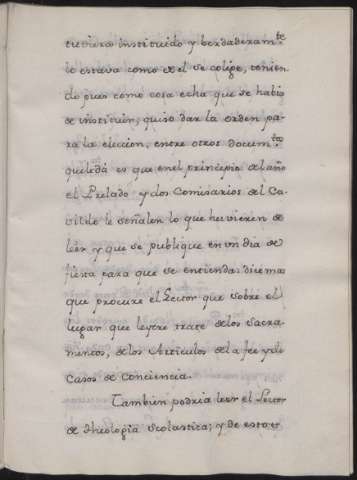 tuviera instituido y berdaderam.te
le estava como de el se colige, tenien
do pues como cosa echa que se habia
de instituir, quiso dar la orden pa-
ra la eleccion, entre otros docum.tos
que le dá es que en el principio del año
el Prelado y dos Comisarios del Ca-
vildo le señalen lo que huvieren de
leér y que se publique en un dia de
fiesta para que se entienda: dice mas
que procure el Lector que sobre el
lugar que leyere trate de los Sacra-
mentos, de los Articulos de la fee y de
Casos de Conciencia.
Tambien podria leer el Lector
de theologia Scolastica; y de esto